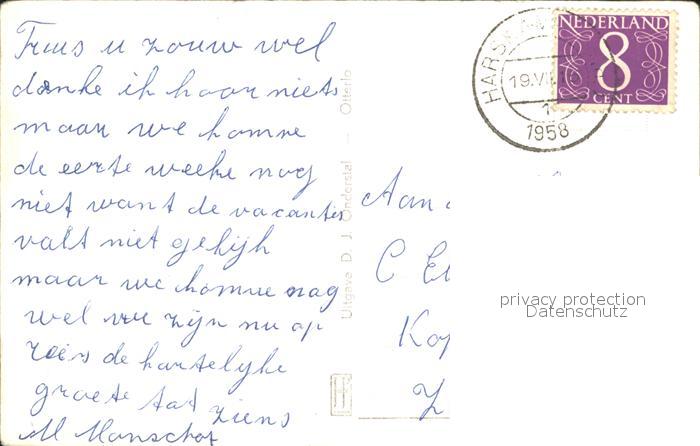 Truus u zouw wel
danke ik hoor niets
maar we komme
de eerte weeke nog
niet want de vacantie
valt niet gelijk
maar we komme nog
wel we zijn nu op
reis de hartelijke
groete tot ziens
M Manschot
Uitgave D. J. Onderstal — Otterlo
HARSKAMP
19.VII
1
1958
NEDERLAND
8
CENT
Aan
C
privacy protection
Datenschutz